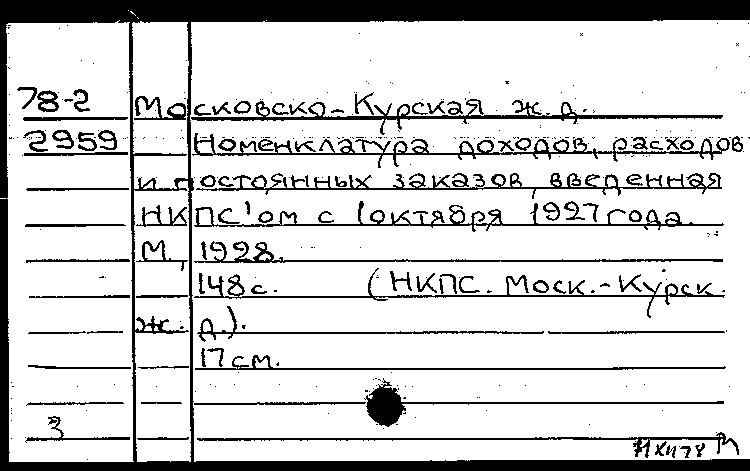 78-2 Московско-Курская ж. д.
2959 Номенклатура доходов, расходов
и постоянных заказов, введенная
НКПС'ом с 1 октября 1927 года.
М., 1928.
148 с. (НКПС. Моск.-Курск.
ж. д.).
17 см.
3